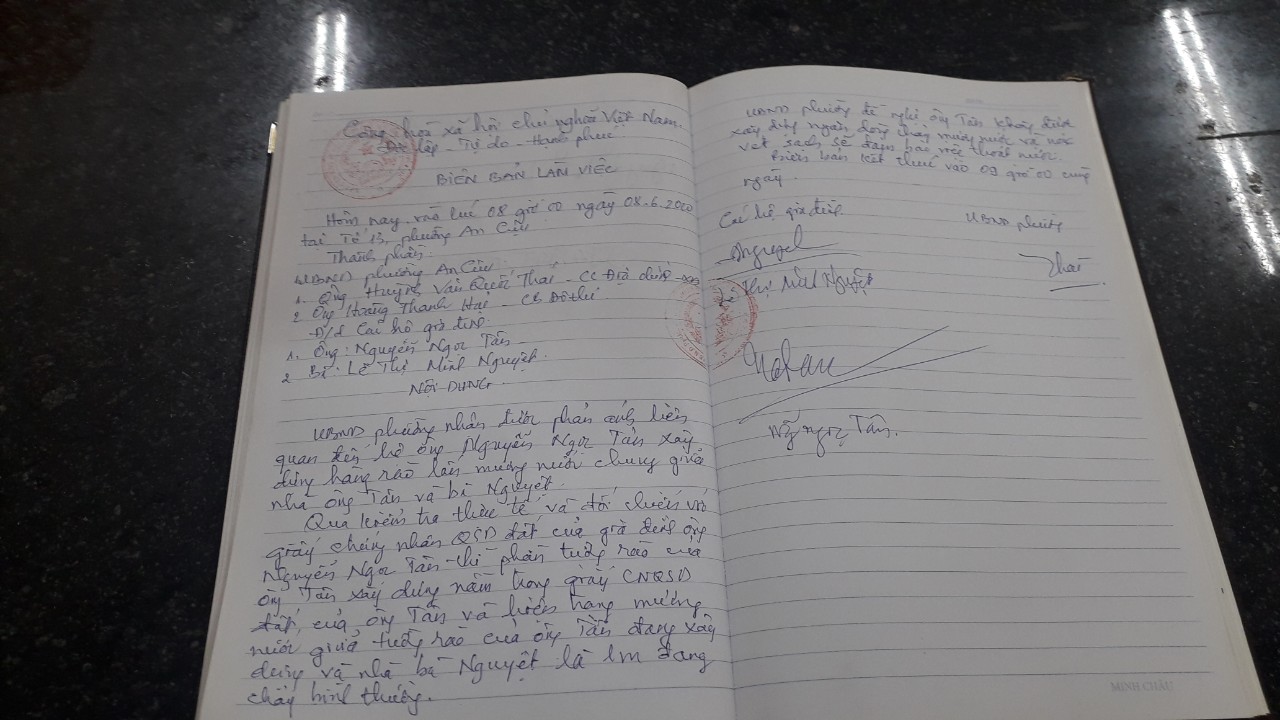 Cộng hòa xã hội chủ nghĩa Việt Nam.
Độc lập - Tự do - Hạnh phúc
BIÊN BẢN LÀM VIỆC
Hôm nay, vào lúc 08 giờ 00 ngày 08-6-2020
tại Tổ 13, phường An Cựu
Thành phần
UBND phường An Cựu
1. Ông Huỳnh Văn Quốc Thái - CC Địa chính
2 Ông Hoàng Thanh Hải - CB Đô thị
Đ/d Các hộ gia đình.
1. Ông: Nguyễn Ngọc Tân
2 Bà: Lê Thị Minh Nguyệt.
NỘI DUNG
UBND phường nhận được phản ánh liên
quan đến hộ ông Nguyễn Ngọc Tân xây
dựng hàng rào lấn mương nước chung giữa
nhà ông Tân và bà Nguyệt.
Qua kiểm tra thực tế và đối chiếu với
giấy chứng nhận QSD đất của gia đình ông
Nguyễn Ngọc Tân thì phần tường rào của
ông Tân xây dựng nằm trong giấy CNQSD
đất của ông Tân và hiện trạng mương
nước giữa tường rào của ông Tân đang xây
dựng và nhà bà Nguyệt là 1m đang
chảy bình thường.
UBND phường đề nghị ông Tân không được
xây dựng ngăn dòng chảy mương nước và nạo
vét sạch sẽ đảm bảo việc thoát nước.
Biên bản kết thúc vào 09 giờ 00 cùng
ngày.
Các hộ gia đình
UBND phường
Nguyệt
Thái
Lê Thị Minh Nguyệt
Ng ngọc Tân.
MINH CHÂU